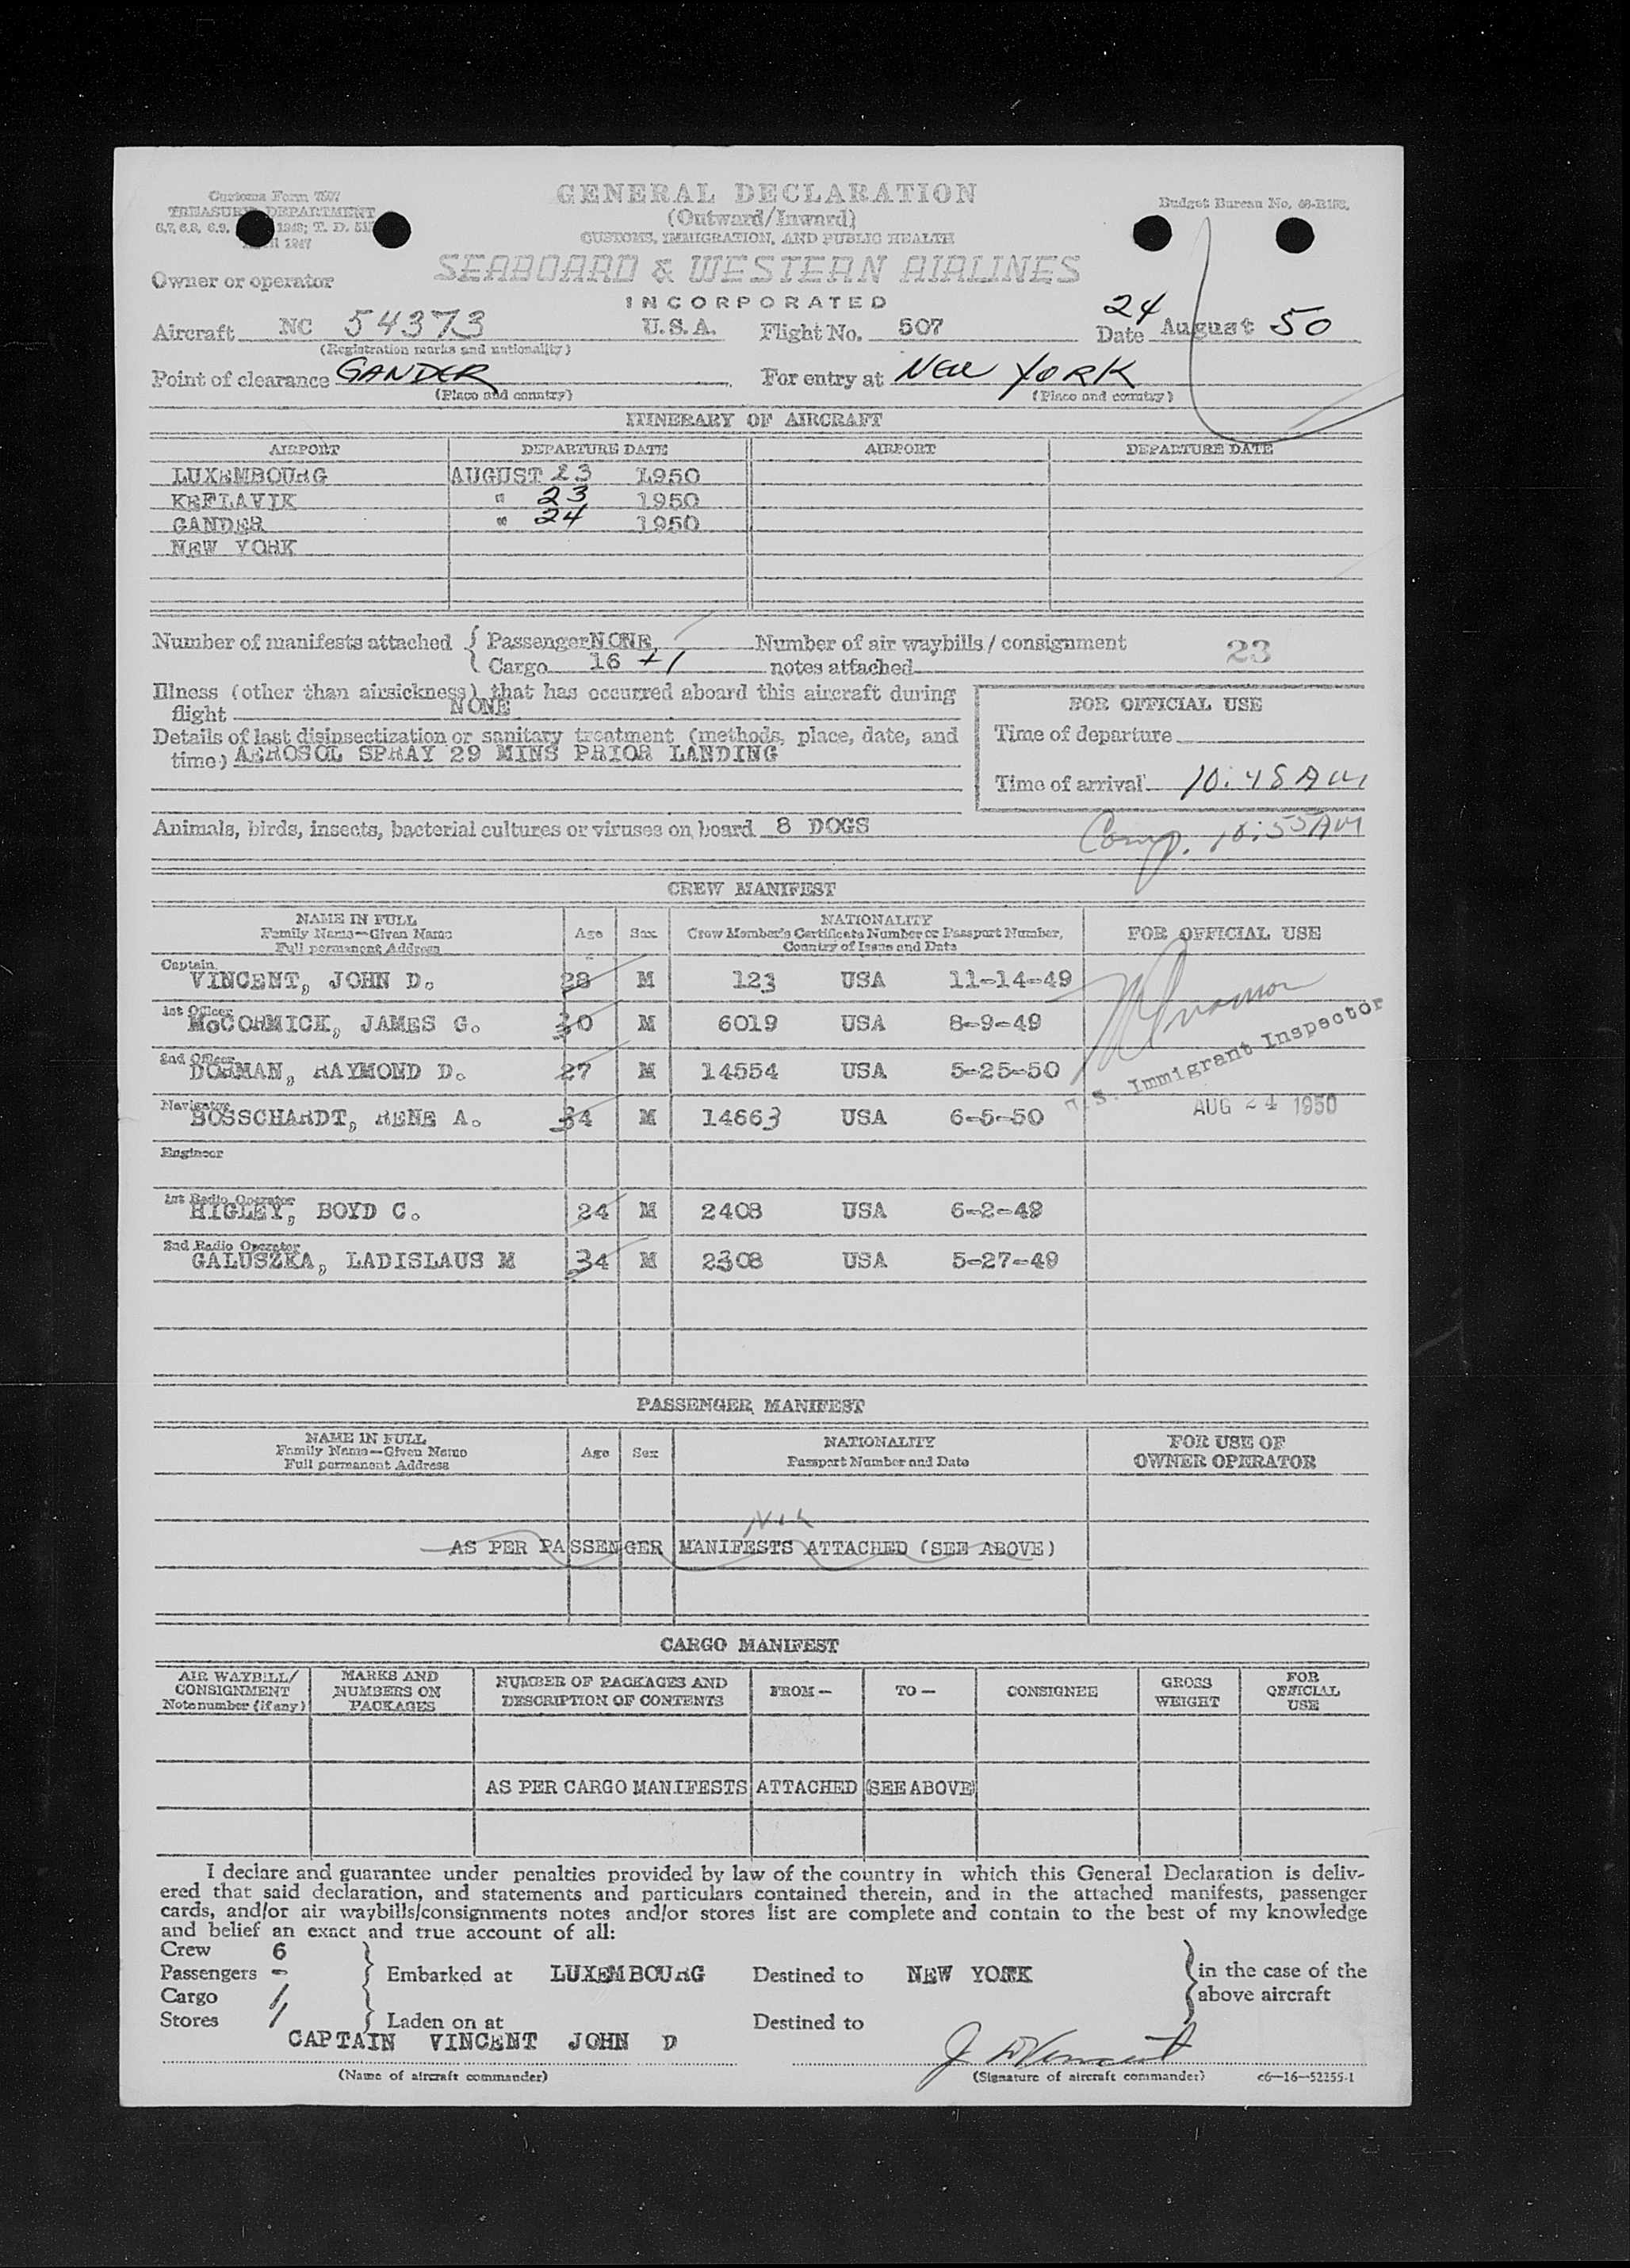 Customs Form 7507
TREASURY DEPARTMENT
GENERAL DECLARATION
(Outward/Inward)
CUSTOMS, IMMIGRATION, AND PUBLIC HEALTH
Budget Bureau No.
Owner or operator SEABOARD & WESTERN AIRLINES
INCORPORATED
Aircraft NC 54373 U.S.A. Flight No. 507 Date 24 August 50
(Registration marks and nationality)
Point of clearance GANDER For entry at NEW YORK
(Place and country) (Place and country)
ITINERARY OF AIRCRAFT
AIRPORT DEPARTURE DATE AIRPORT DEPARTURE DATE
LUXEMBOURG AUGUST 23 1950
KEFLAVIK " 23 1950
GANDER " 24 1950
NEW YORK
Number of manifests attached { Passenger NONE Number of air waybills / consignment 23
Cargo 16 +1 notes attached
Illness (other than airsickness) that has occurred aboard this aircraft during
flight NONE
FOR OFFICIAL USE
Details of last disinsectization or sanitary treatment (methods, place, date, and
time) AEROSOL SPRAY 29 MINS PRIOR LANDING
Time of departure
Time of arrival 10:48 AM
Animals, birds, insects, bacterial cultures or viruses on board 8 DOGS
Comp. 10:55 AM
CREW MANIFEST
NAME IN FULL Age Sex NATIONALITY FOR OFFICIAL USE
Family Name—Given Name Crew Member's Certificate Number or Passport Number,
Full permanent Address Country of Issue and Date
Captain
VINCENT, JOHN D. 28 M 123 USA 11-14-49
1st Officer
McCORMICK, JAMES G. 30 M 6019 USA 8-9-49
2nd Officer
DORMAN, RAYMOND D. 27 M 14554 USA 5-25-50
U.S. Immigrant Inspector
Navigator
BOSSCHARDT, RENE A. 34 M 14663 USA 6-5-50
AUG 24 1950
Engineer
1st Radio Operator
HIGLEY, BOYD C. 24 M 2408 USA 6-2-49
2nd Radio Operator
GALUSZKA, LADISLAUS M 34 M 2308 USA 5-27-49
PASSENGER MANIFEST
NAME IN FULL Age Sex NATIONALITY FOR USE OF
Family Name—Given Name Passport Number and Date OWNER OPERATOR
Full permanent Address
AS PER PASSENGER MANIFESTS ATTACHED (SEE ABOVE)
CARGO MANIFEST
AIR WAYBILL/ MARKS AND NUMBER OF PACKAGES AND FROM— TO— CONSIGNEE GROSS FOR
CONSIGNMENT NUMBERS ON DESCRIPTION OF CONTENTS WEIGHT OFFICIAL
Note number (if any) PACKAGES USE
AS PER CARGO MANIFESTS ATTACHED (SEE ABOVE)
I declare and guarantee under penalties provided by law of the country in which this General Declaration is deliv-
ered that said declaration, and statements and particulars contained therein, and in the attached manifests, passenger
cards, and/or air waybills/consignments notes and/or stores list are complete and contain to the best of my knowledge
and belief an exact and true account of all:
Crew 6
Passengers - } Embarked at LUXEMBOURG Destined to NEW YORK } in the case of the
Cargo / above aircraft
Stores / } Laden on at Destined to
CAPTAIN VINCENT JOHN D J D Vincent
(Name of aircraft commander) (Signature of aircraft commander) c6—16—52255-1